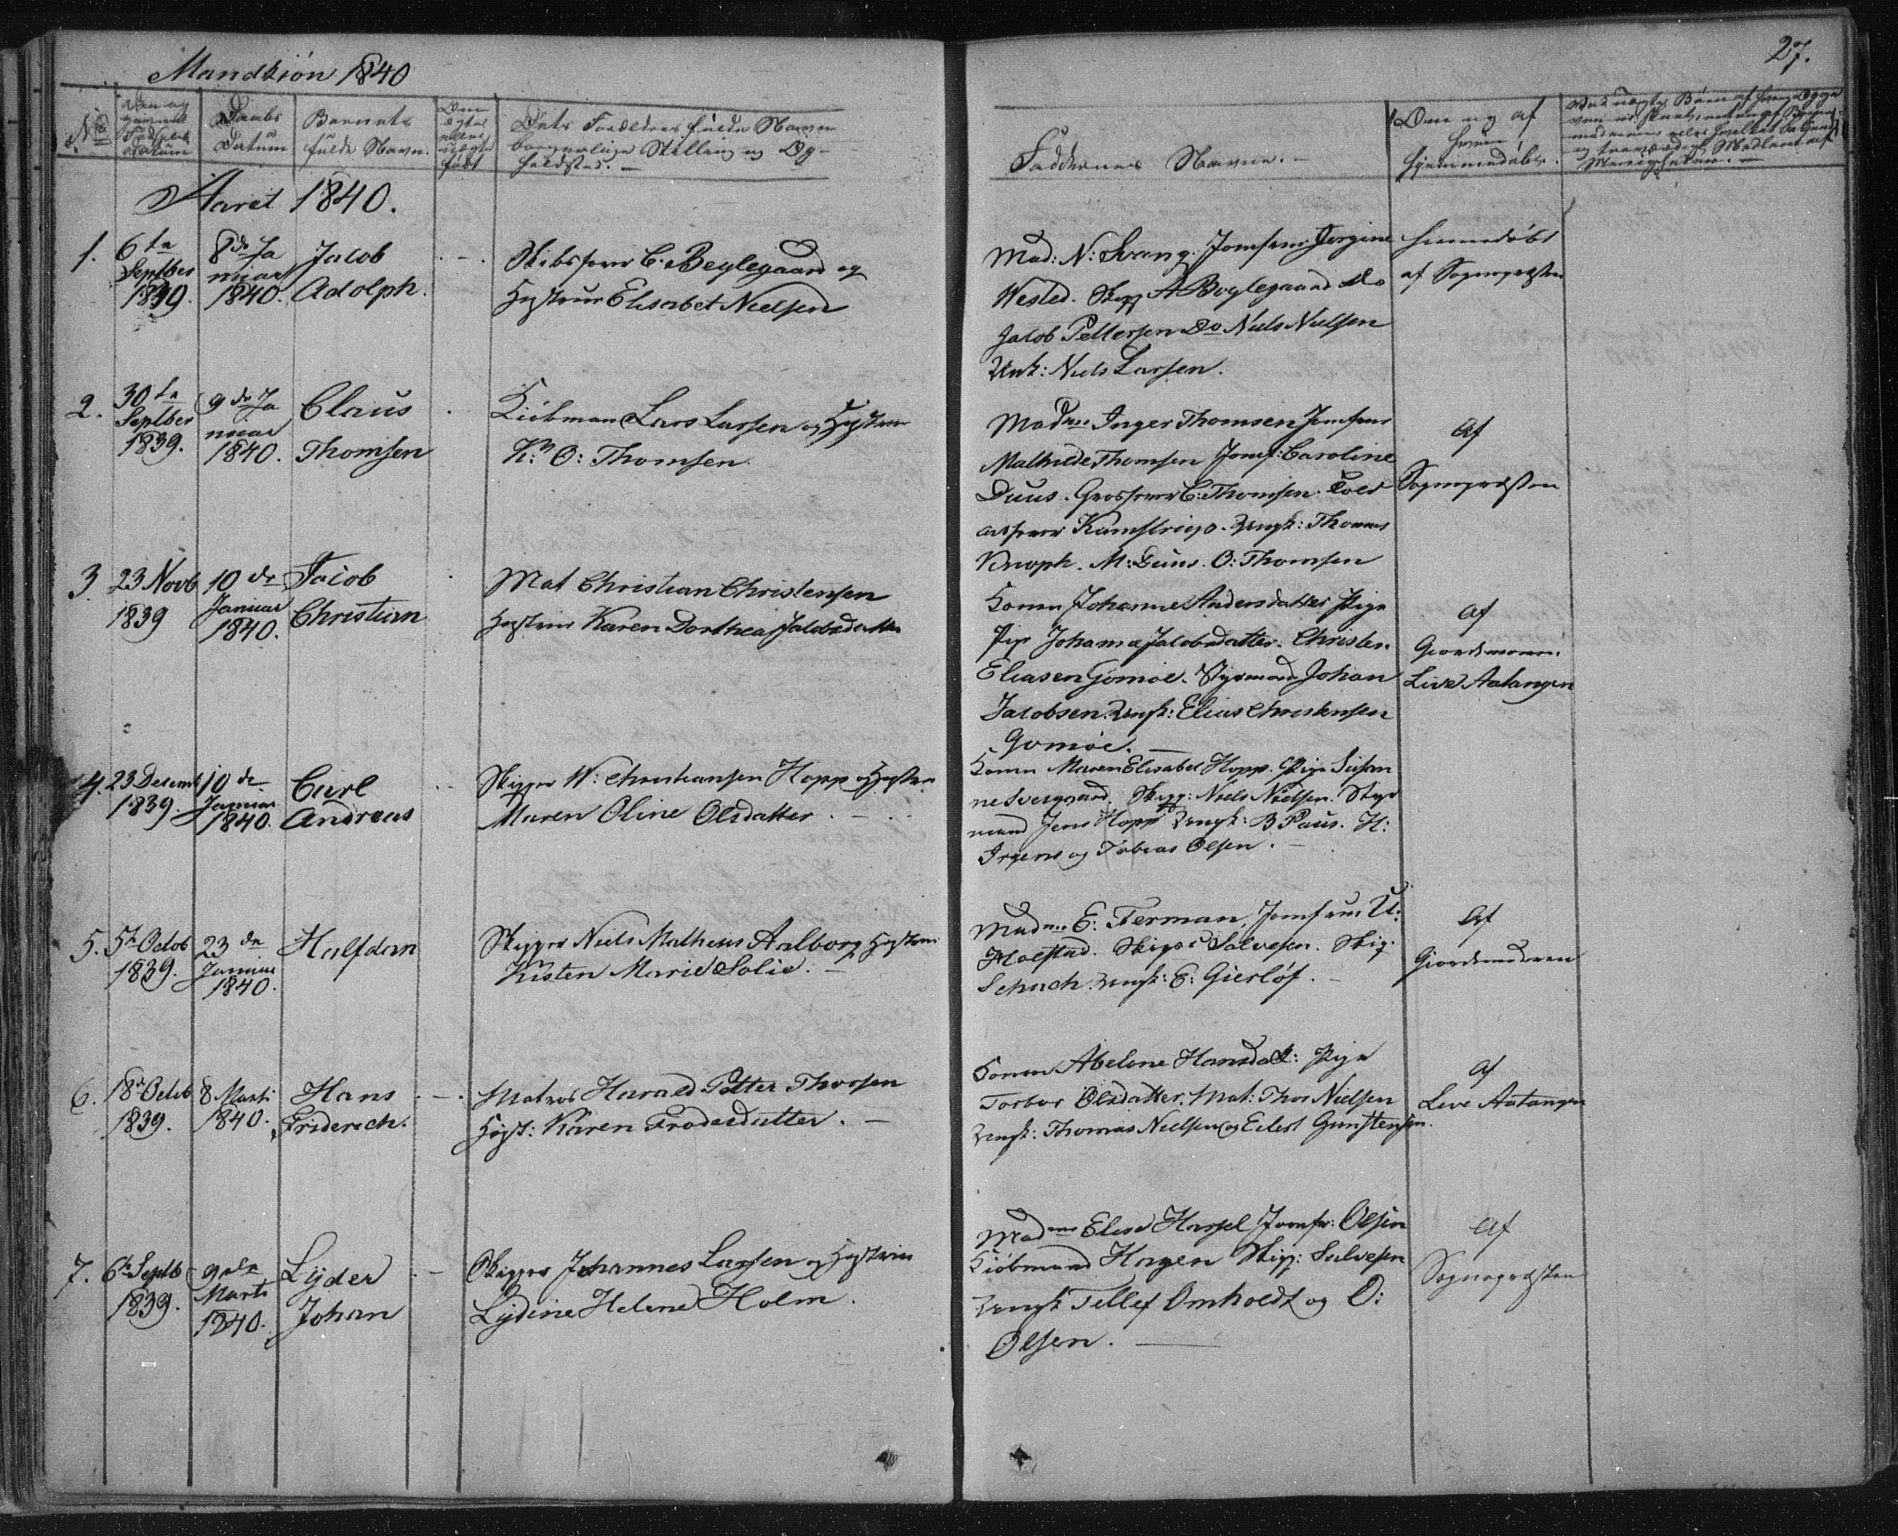 27.
Mandkiøn 1840
No
Daabs Datum
Barnets fulde Navn.
Dets Forældres fulde Navn borgerlige Stilling og Opholdsted. —
Faddernes Navne. —
Om og af hvem hjemmedøbt.
Aaret 1840.
1. 6te Septber 1839. 8de Januar 1840. Jacob Adolph.
Skibsfører C. Beylegaard og
Hustrue Elisabet Nielsen
Mad: N: Svang. Jomfrue Jørgine
Wested. Skipp A Boylegaard Do
Jacob Pettersen Do Niels Nielsen
Unk: Niels Larsen.
hiemedøbt
af Sognepræsten
2. 30te Septber 1839. 9de Januar 1840. Claus Thomsen
Kiøbman Lars Larsen og Hustrue
K: O: Thomsen.
Madme Inger Thomsen Jomfrue
Mathilde Thomsen Jomf: Caroline
Duus. Grosserer C: Thomsen. Told
Kamstrup. Ungk: Thomas
M: Duus O: Thomsen
Af
Sognepræsten
3. 23 Novb 1839 10de Januar 1840. Jacob Christian
Mat Christian Christensen
Hustrue Karen Dorthea Jacobsdatter
Konen Johanne Andersdatter Pige
Johana Jacobsdatter. Christen
Eliasen Gomøe. Styrmand Johan
Jacobsen. Ungk: Elias Christensen
Gomøe. —
af
Giordemoren
Live Aatangen
4. 23 Desemb 1839. 10de Januar 1840. Carl Andreas
Skipper W: Christiansen Hopp og Hustrue
Maren Oline Olsdatter. —
Konen Maren Elisabet Hopp. Pige Susan
ne Svergaard. Skipp: Niels Nielsen. Styr
mand Jens Hopp Ungk: B Paus. H:
Irgens og Tobias Olsen. —
5. 5te Octob 1839. 23de Januar 1840. Halfdan
Skipper Niels Matheus Aalborg Hustrue
Kisten Marie Solie. —
Madme E: Ferman, Jomfrue U:
Moestad. Skipper Salvesen. Skip.
Schach. Ungk: E: Gierløf. —
Af
Giordemoderen
6. 18de Octob 1839. 8 Marts 1840. Hans Friderich.
Matros Harald Petter Thorsen
Hust: Karen Frodesdatter. —
Konen Abelone Hansdat: Pige
Torbor Olsdatter. Mat: Thor Nielsen
Ungk: Thomas Nielsen og Eilert Gunstensen.
af
Live Aatangen
7. 6te Septb 1839. 9de Marts 1840. Lyder Johan
Skipper Johannes Larsen og Hustrue
Lydine Helene Holm.
Madme Elise Hassel Jomfr: Olsen
Kiøbmand Hagen Skip: Salvesen
Ungk Tellef Omholdt og O:
Olsen. —
Af
Sognepræsten